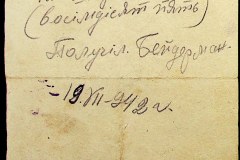 (восімдісят пять)
Получил. Бейдерман.
19. VII - 942 г.